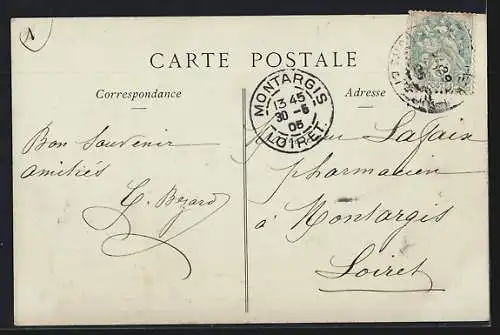 CARTE POSTALE
Correspondance
Adresse
MONTARGIS
13 45
30 - 6
05
LOIRET
Bon Souvenir
amitiés
pharmacien
à Montargis
Loiret